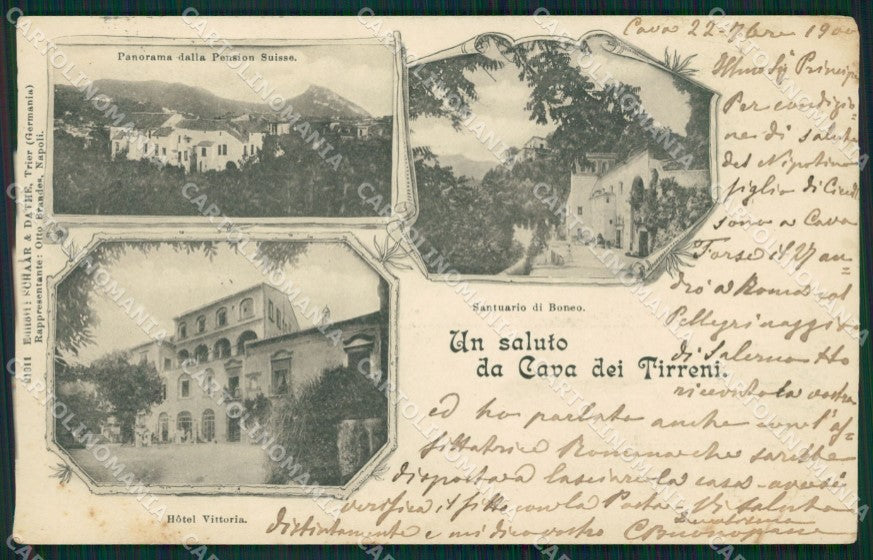 Panorama dalla Pension Suisse.
Santuario di Boneo.
Hôtel Vittoria.
Un saluto
da Cava dei Tirreni.
21311 Editori: SCHAAR & DATHE, Trier (Germania)
Rappresentante: Otto Brandes, Napoli.
Cava 22-7bre 1900
Illmo Sig Principe
Per condizio-
ni di salute
del Nipotino
figlio di
sono a Cava
Forse il 27 an
drò a Roma col
Pellegrinaggio
di Salerno Ho
ricevuto la vostra
ed ho parlato anche con l'af-
fittatrice Romana che sarebbe
disposta a lasciare la casa
il fitto con la Posta. Vi saluto
distintamente e mi dico vostro
CARTOLINOMANIA